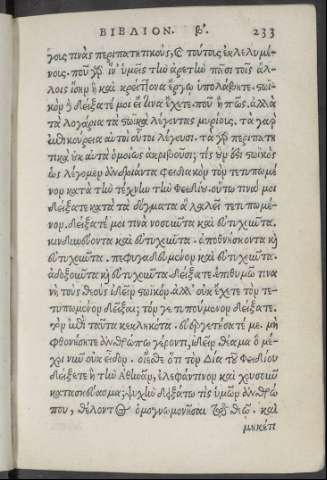 ΒΙΒΛΙΟΝ. β'. 233
γοις τινὰς περιπατητικούς, καὶ τούτους ἐκλελυμέ-
νους. ποῦ γὰρ ἵν' ὑμεῖς τὴν ἀρετὴν πᾶσι τοῖς ἄλ-
λοις ἴσην ἢ καὶ κρείττονα ἔργῳ ὑπολάβητε. στωϊ-
κὸν δὲ δείξατέ μοι εἴ τινα ἔχετε. ποῦ ἢ πῶς. ἀλλὰ
τὰ λογάρια τὰ στωϊκὰ λέγοντας μυρίους. τὰ γὰρ
ἐπικούρεια αὐτοὶ οὗτοι λέγουσι. τὰ γὰρ περιπατη-
τικὰ οὐκ αὐτὰ ὁμοίως ἀκριβοῦσι; τίς οὖν ἐστι στωϊκός
ὡς λέγομεν ἀνδριάντα φειδιακὸν τὸν τετυπωμέ-
νον κατὰ τὴν τέχνην τὴν Φειδίου. οὕτω τινά μοι
δείξατε κατὰ τὰ δόγματα ἃ λαλεῖ τετυπωμέ-
νον. δείξατέ μοί τινα νοσοῦντα καὶ εὐτυχοῦντα.
κινδυνεύοντα καὶ εὐτυχοῦντα. ἀποθνήσκοντα καὶ
εὐτυχοῦντα. πεφυγαδευμένον καὶ εὐτυχοῦντα.
ἀδοξοῦντα καὶ εὐτυχοῦντα δείξατε. ἐπιθυμῶ τινα
νὴ τοὺς θεοὺς ἰδεῖν στωϊκόν. ἀλλ' οὐκ ἔχετε τὸν τε-
τυπωμένον δεῖξαι; τόν γε τυπούμενον δείξατε.
τὸν ἐπὶ ταῦτα κεκλικότα. εὐεργετήσατέ με. μὴ
φθονήσητε ἀνθρώπῳ γέροντι, ἰδεῖν θέαμα ὃ μέ-
χρι νῦν οὐκ εἶδον. οἴεσθε ὅτι τὸν Δία τοῦ Φειδίου
δείξετε ἢ τὴν Ἀθηνᾶν, ἐλεφάντινον καὶ χρυσοῦν
κατασκεύασμα; ψυχὴν δειξάτω τις ὑμῶν ἀνθρώ-
που, θέλοντος ὁμογνωμονῆσαι τῷ θεῷ. καὶ
μηκέτι